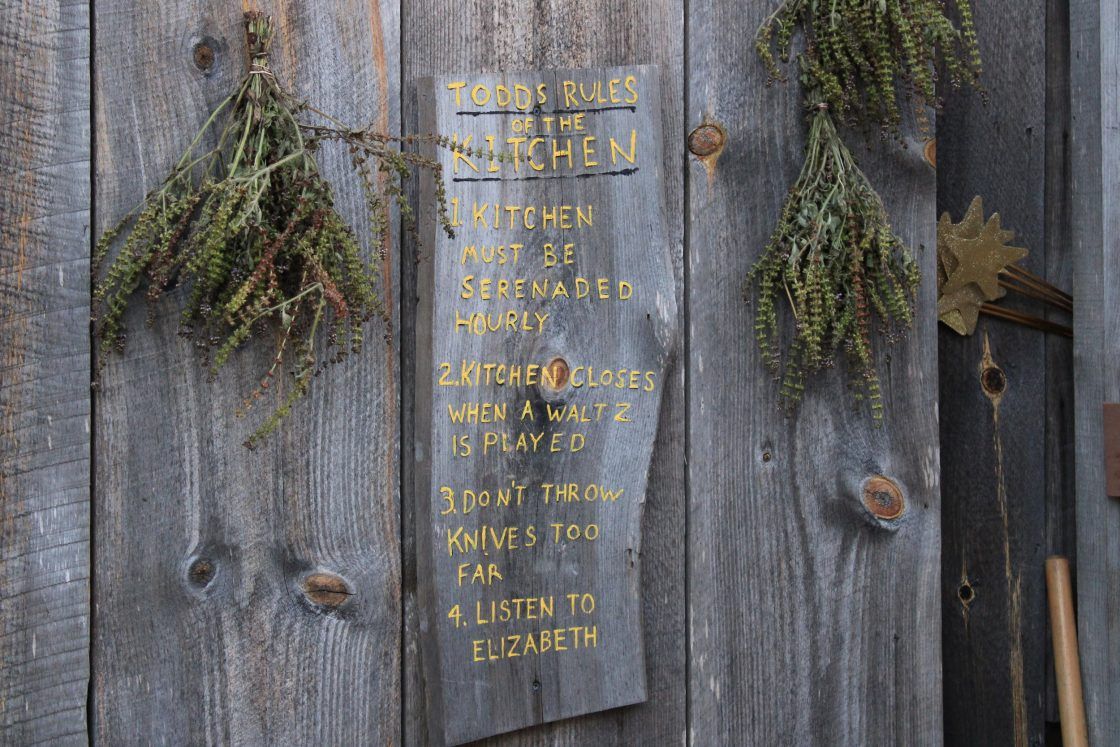 TODDS RULES
OF THE
KITCHEN
1. KITCHEN
MUST BE
SERENADED
HOURLY
2. KITCHEN CLOSES
WHEN A WALTZ
IS PLAYED
3. DON'T THROW
KNIVES TOO
FAR
4. LISTEN TO
ELIZABETH